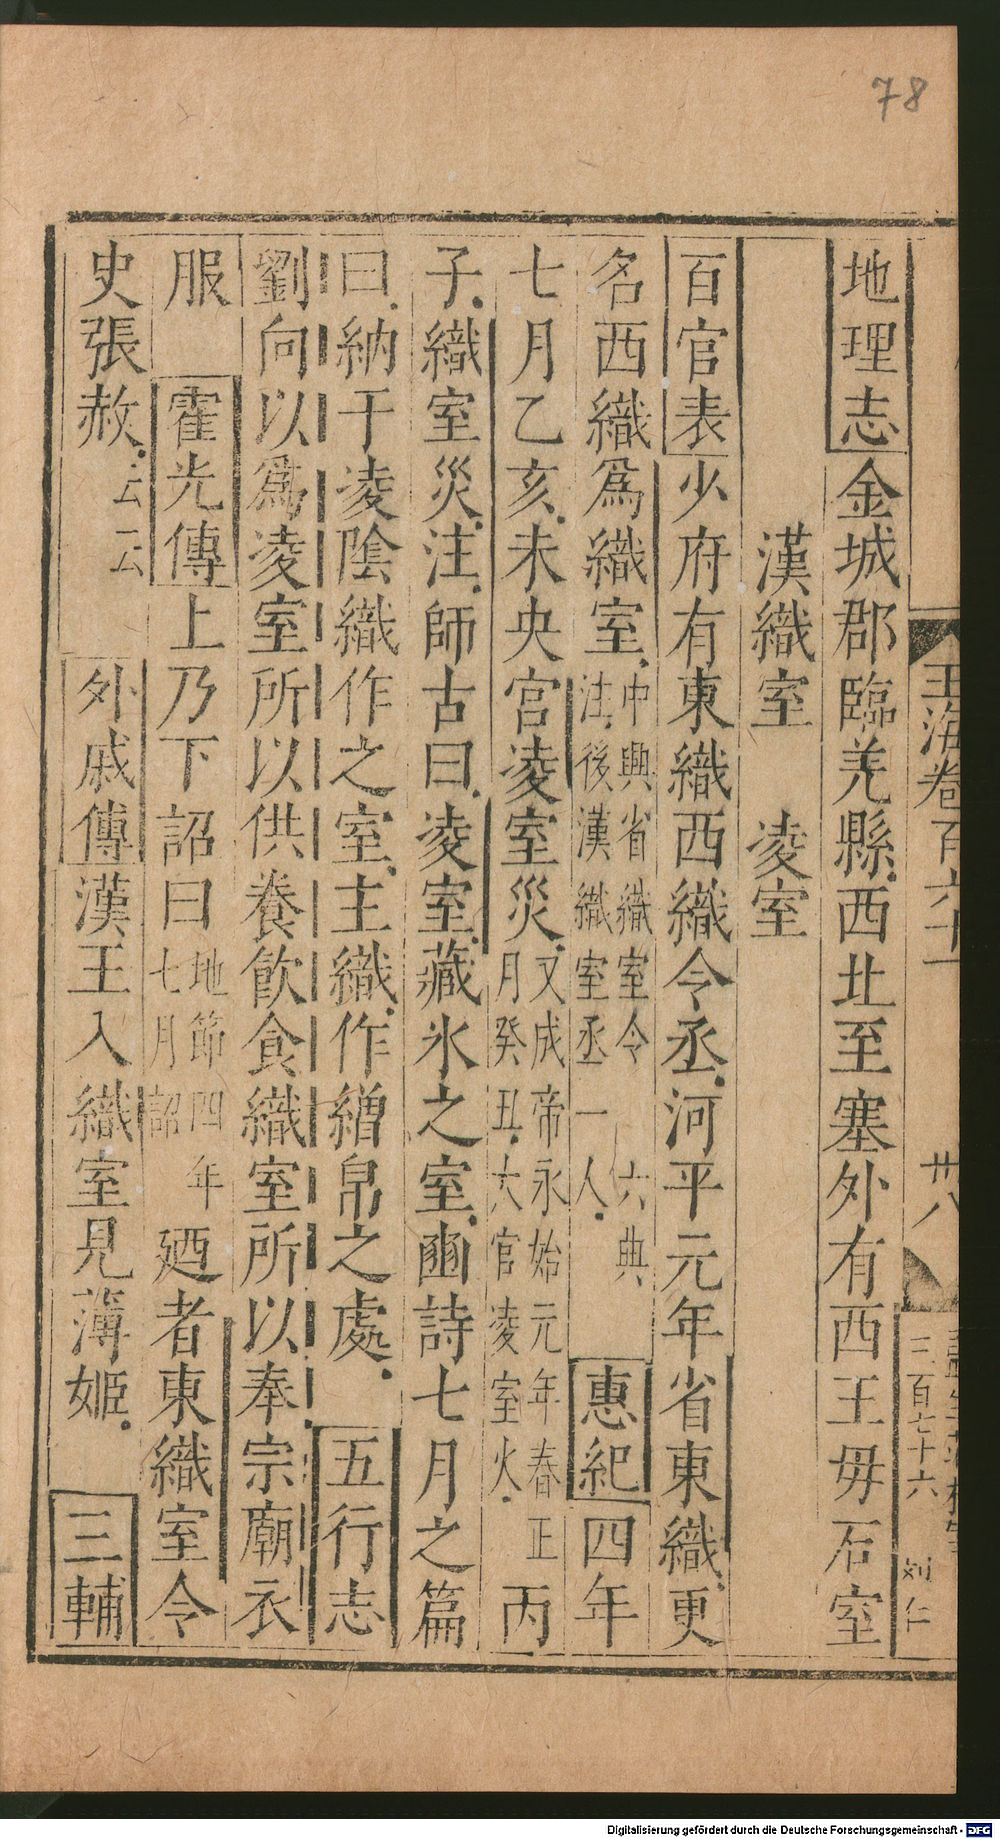 78
玉海卷百六十一
廿八
三百七十六
刘仁
地理志金城郡臨羌縣西北至塞外有西王毋石室
漢織室 凌室
百官表少府有東織西織令丞河平元年省東織更
名西織爲織室中興省織室令 六典注後漢織室丞一人 惠紀四年
七月乙亥未央宮凌室災又成帝永始元年春正月癸丑大官凌室火 丙
子織室災注師古曰凌室藏氷之室豳詩七月之篇
曰納于凌陰織作之室主織作繒帛之處 五行志
劉向以爲凌室所以供養飲食織室所以奉宗廟衣
服 霍光傳上乃下詔曰地節四年七月詔廼者東織室令
史張赦云云 外戚傳漢王入織室見薄姬 三輔
Digitalisierung gefördert durch die Deutsche Forschungsgemeinschaft - DFG